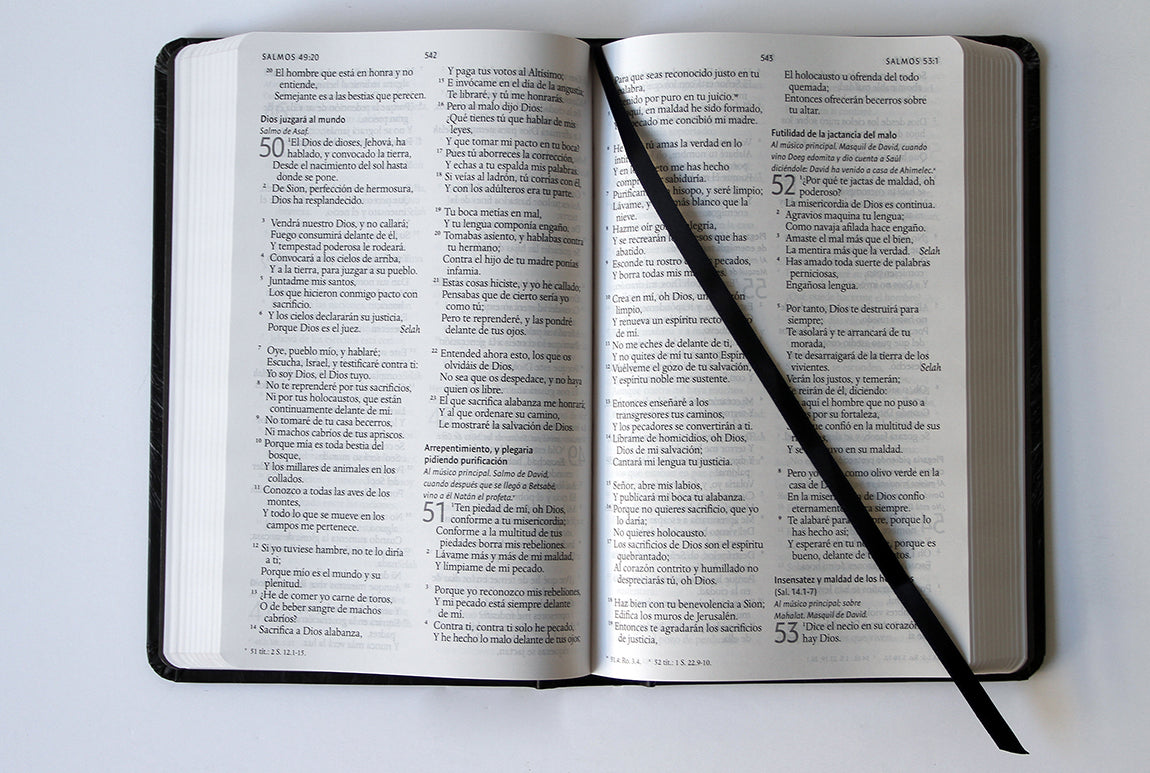 SALMOS 49:20
542
20 El hombre que está en honra y no
entiende,
Semejante es a las bestias que perecen.
Dios juzgará al mundo
Salmo de Asaf.
50 1El Dios de dioses, Jehová, ha
hablado, y convocado la tierra,
Desde el nacimiento del sol hasta
donde se pone.
2 De Sion, perfección de hermosura,
Dios ha resplandecido.
3 Vendrá nuestro Dios, y no callará;
Fuego consumirá delante de él,
Y tempestad poderosa le rodeará.
4 Convocará a los cielos de arriba,
Y a la tierra, para juzgar a su pueblo.
5 Juntadme mis santos,
Los que hicieron conmigo pacto con
sacrificio.
6 Y los cielos declararán su justicia,
Porque Dios es el juez. Selah
7 Oye, pueblo mío, y hablaré;
Escucha, Israel, y testificaré contra ti:
Yo soy Dios, el Dios tuyo.
8 No te reprenderé por tus sacrificios,
Ni por tus holocaustos, que están
continuamente delante de mí.
9 No tomaré de tu casa becerros,
Ni machos cabríos de tus apriscos.
10 Porque mía es toda bestia del
bosque,
Y los millares de animales en los
collados.
11 Conozco a todas las aves de los
montes,
Y todo lo que se mueve en los
campos me pertenece.
12 Si yo tuviese hambre, no te lo diría
a ti;
Porque mío es el mundo y su
plenitud.
13 ¿He de comer yo carne de toros,
O de beber sangre de machos
cabríos?
14 Sacrifica a Dios alabanza,
Y paga tus votos al Altísimo;
15 E invócame en el día de la angustia;
Te libraré, y tú me honrarás.
16 Pero al malo dijo Dios:
¿Qué tienes tú que hablar de mis
leyes,
Y que tomar mi pacto en tu boca?
17 Pues tú aborreces la corrección,
Y echas a tu espalda mis palabras.
18 Si veías al ladrón, tú corrías con él,
Y con los adúlteros era tu parte.
19 Tu boca metías en mal,
Y tu lengua componía engaño.
20 Tomabas asiento, y hablabas contra
tu hermano;
Contra el hijo de tu madre ponías
infamia.
21 Estas cosas hiciste, y yo he callado;
Pensabas que de cierto sería yo
como tú;
Pero te reprenderé, y las pondré
delante de tus ojos.
22 Entended ahora esto, los que os
olvidáis de Dios,
No sea que os despedace, y no haya
quien os libre.
23 El que sacrifica alabanza me honrará;
Y al que ordenare su camino,
Le mostraré la salvación de Dios.
Arrepentimiento, y plegaria
pidiendo purificación
Al músico principal. Salmo de David,
cuando después que se llegó a Betsabé,
vino a él Natán el profeta.*
51 1Ten piedad de mí, oh Dios,
conforme a tu misericordia;
Conforme a la multitud de tus
piedades borra mis rebeliones.
2 Lávame más y más de mi maldad,
Y límpiame de mi pecado.
3 Porque yo reconozco mis rebeliones,
Y mi pecado está siempre delante
de mí.
4 Contra ti, contra ti solo he pecado,
Y he hecho lo malo delante de tus ojos;
* 51 tít.: 2 S. 12.1-15.
543
SALMOS 53:1
Para que seas reconocido justo en tu
palabra,
tenido por puro en tu juicio.*
aquí, en maldad he sido formado,
pecado me concibió mi madre.
6 He tú amas la verdad en lo
Y en eto me has hecho
sabiduría.
7 Purifícame hisopo, y seré limpio;
Lávame, y más blanco que la
nieve.
8 Hazme oír gozo alegría,
Y se recrearán que has
abatido.
9 Esconde tu rostro pecados,
Y borra todas mis
10 Crea en mí, oh Dios, un
limpio,
Y renueva un espíritu recto
de mí.
11 No me eches de delante de ti,
Y no quites de mí tu santo Espíritu
12 Vuélveme el gozo de tu salvación,
Y espíritu noble me sustente.
13 Entonces enseñaré a los
transgresores tus caminos,
Y los pecadores se convertirán a ti.
14 Líbrame de homicidios, oh Dios,
Dios de mi salvación;
Cantará mi lengua tu justicia.
15 Señor, abre mis labios,
Y publicará mi boca tu alabanza.
16 Porque no quieres sacrificio, que yo
lo daría;
No quieres holocausto.
17 Los sacrificios de Dios son el espíritu
quebrantado;
Al corazón contrito y humillado no
despreciarás tú, oh Dios.
18 Haz bien con tu benevolencia a Sion;
Edifica los muros de Jerusalén.
19 Entonces te agradarán los sacrificios
de justicia,
El holocausto u ofrenda del todo
quemada;
Entonces ofrecerán becerros sobre
tu altar.
Futilidad de la jactancia del malo
Al músico principal. Masquil de David, cuando
vino Doeg edomita y dio cuenta a Saúl
diciéndole: David ha venido a casa de Ahimelec.*
52 1¿Por qué te jactas de maldad, oh
poderoso?
La misericordia de Dios es continua.
2 Agravios maquina tu lengua;
Como navaja afilada hace engaño.
3 Amaste el mal más que el bien,
La mentira más que la verdad. Selah
4 Has amado toda suerte de palabras
perniciosas,
Engañosa lengua.
5 Por tanto, Dios te destruirá para
siempre;
Te asolará y te arrancará de tu
morada,
Y te desarraigará de la tierra de los
vivientes. Selah
Verán los justos, y temerán;
Se reirán de él, diciendo:
aquí el hombre que no puso a
por su fortaleza,
que confió en la multitud de sus
Y se en su maldad.
8 Pero yo como olivo verde en la
casa de
En la de Dios confío
eternamente siempre.
9 Te alabaré para porque lo
has hecho así;
Y esperaré en tu porque es
bueno, delante de
Insensatez y maldad de los
(Sal. 14.1-7)
Al músico principal; sobre
Mahalat. Masquil de David.
53 1Dice el necio en su corazón
hay Dios.
* 51.4: Ro. 3.4. * 52 tít.: 1 S. 22.9-10.